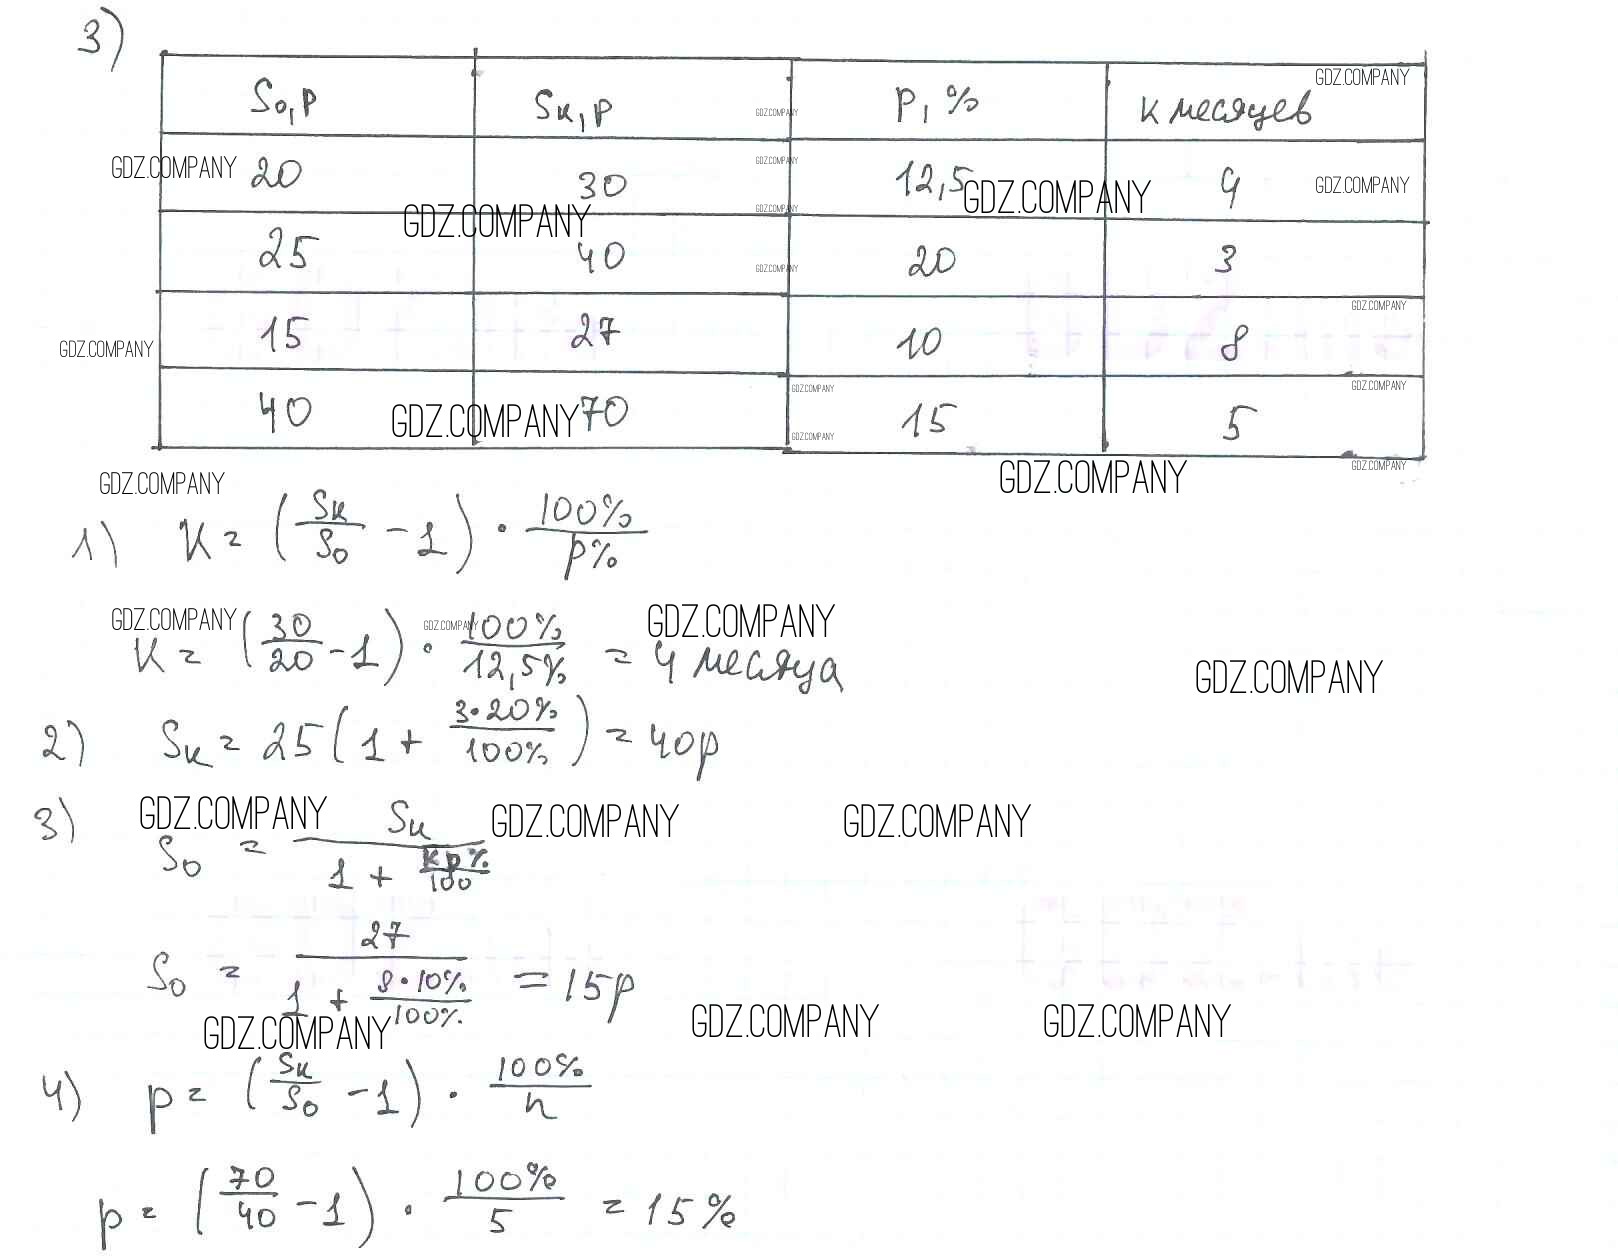 3)
S₀,р Sк,р р,% к месяцев
20 30 12,5 4
25 40 20 3
15 27 10 8
40 70 15 5
1) К = (Sк/S₀ - 1) · 100%/р%
К = (30/20 - 1) · 100%/12,5% = 4 месяца
2) Sк = 25(1 + 3·20%/100%) = 40р
3) S₀ = Sк/(1 + кр%/100)
S₀ = 27/(1 + 8·10%/100%) = 15р
4) р = (Sк/S₀ - 1) · 100%/n
р = (70/40 - 1) · 100%/5 = 15%
GDZ.COMPANY